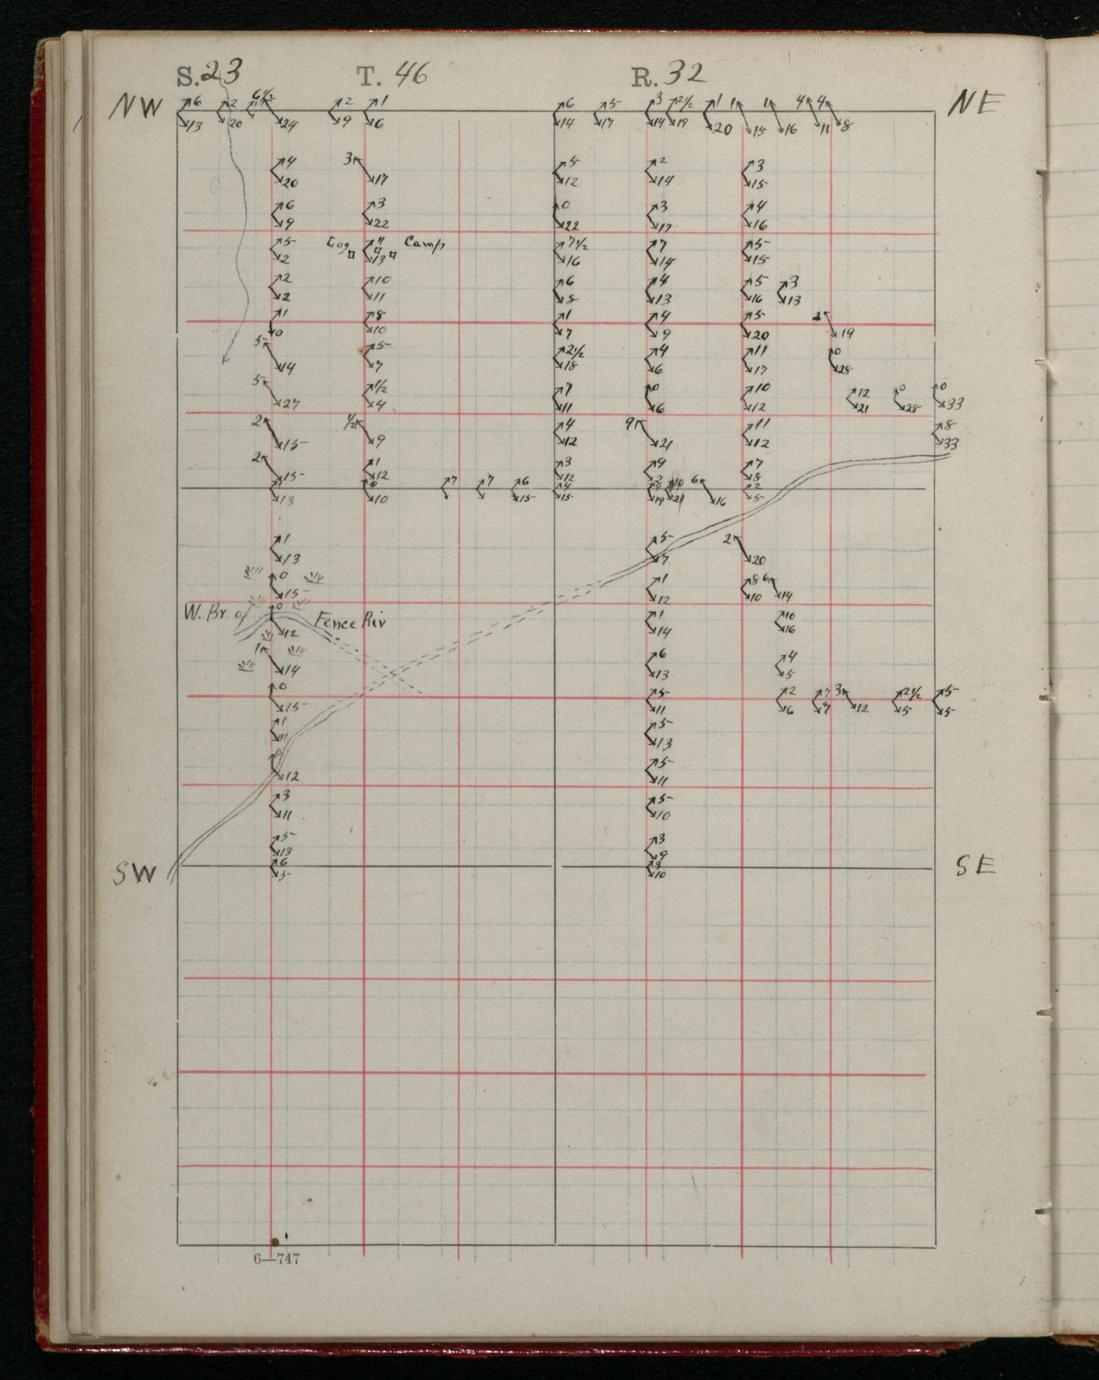 S. 23 T. 46 R. 32
NW 6 2 6 1/2 2 1 6 5 3 2 1/2 1 1 1 4 4 NE
13 20 24 9 6 14 17 14 19 20 15 16 11 8
4 3 5 2 3
20 17 12 14 15
6 3 0 3 4
9 22 22 17 16
5 Log 11 Camp 7 1/2 7 5
2 13 16 14 15
2 10 6 4 5 3
2 11 8 13 16 13
1 8 1 4 5 2
0 10 7 9 20 19
5 5 2 1/2 4 11 0
14 7 18 6 17 28
5 1/2 7 0 10 12 0 0
27 4 11 6 12 21 28 33
2 1/2 4 9 11 8
15 9 12 21 12 33
2 1 3 9 7
15 12 12 2 8
7 7 6 4 10 6 2
13 10 15 15 19 21 16 5
1 5 2
13 7 20
0 1 8 6
15 12 10 14
W. Br. of 0 Fence Riv 1 10
12 14 16
1 6 4
14 13 5
0 5 2 7 3 2 1/2 5
15 11 6 7 12 5 5
1 5
11 13
0 5
12 11
3 5
11 10
5 3
13 9
SW 6 3 SE
5 10
6—747